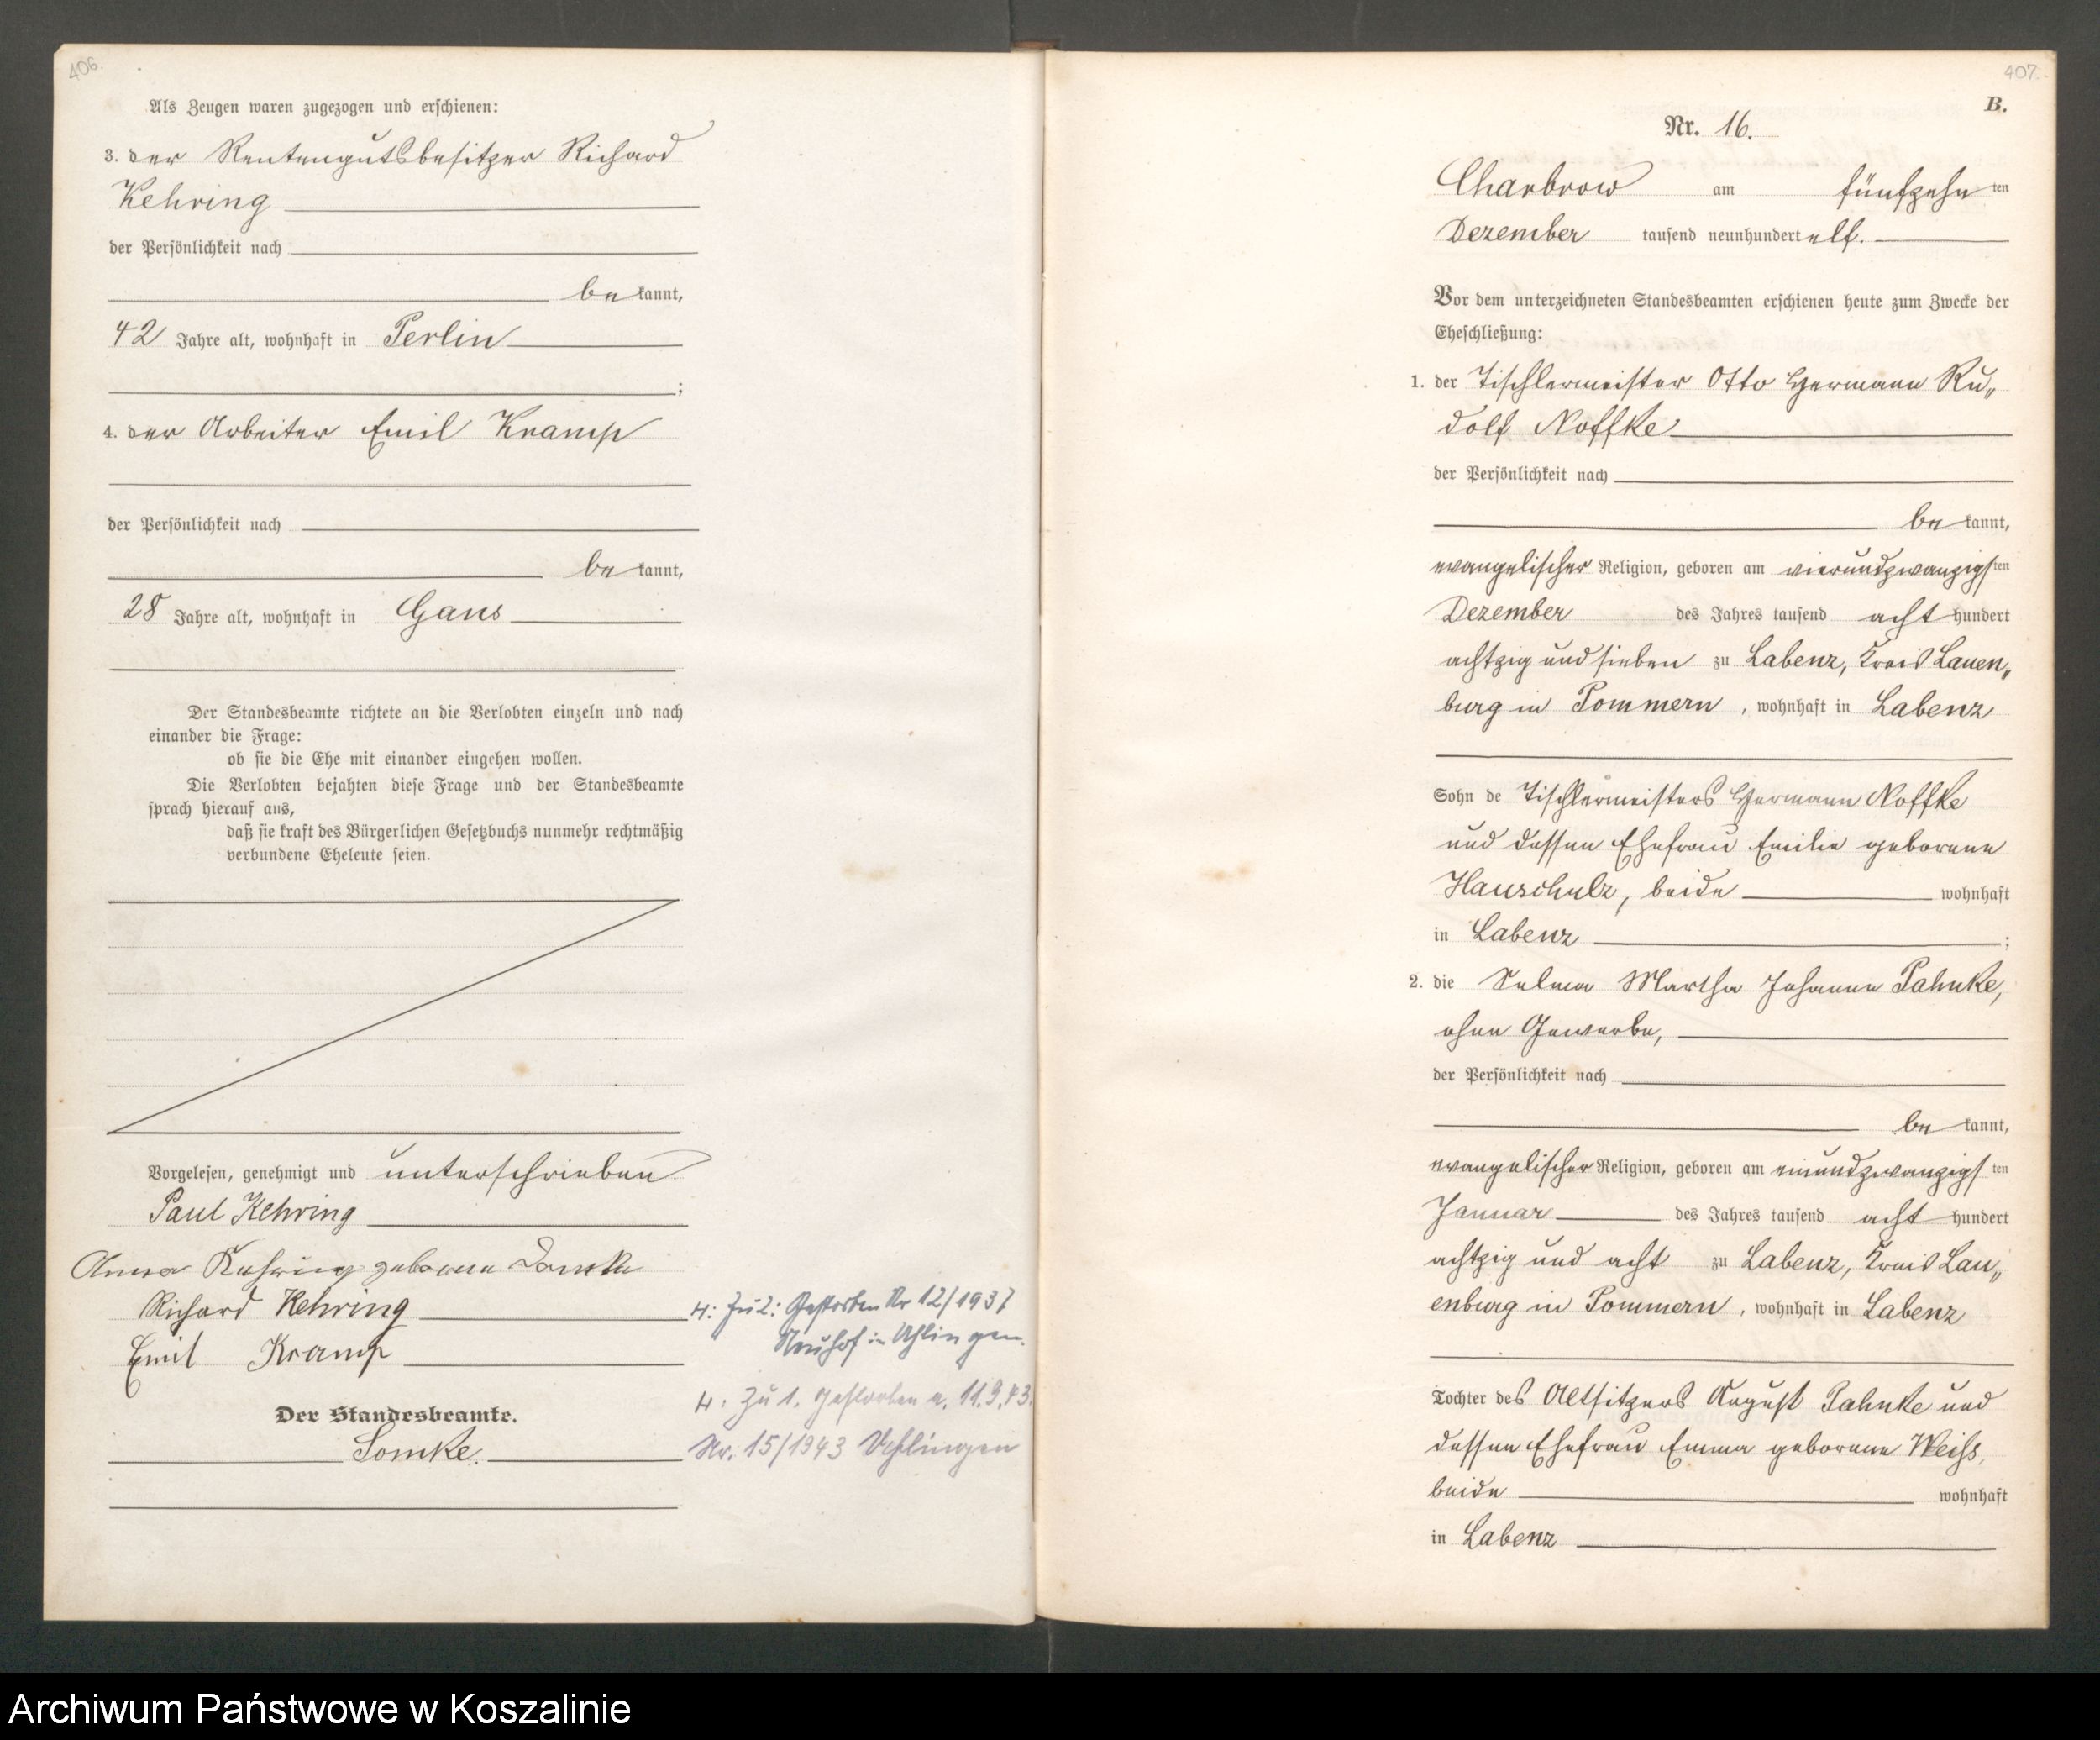 406.
Als Zeugen waren zugezogen und erschienen:
3. der Rentengutsbesitzer Richard
Kehring
der Persönlichkeit nach
be kannt,
42 Jahre alt, wohnhaft in Perlin
;
4. der Arbeiter Emil Kramp
der Persönlichkeit nach
be kannt,
28 Jahre alt, wohnhaft in Gans
Der Standesbeamte richtete an die Verlobten einzeln und nach
einander die Frage:
ob sie die Ehe mit einander eingehen wollen.
Die Verlobten bejahten diese Frage und der Standesbeamte
sprach hierauf aus,
daß sie kraft des Bürgerlichen Gesetzbuchs nunmehr rechtmäßig
verbundene Eheleute seien.
Vorgelesen, genehmigt und unterschrieben
Paul Kehring
Anna Kehring geborene
Richard Kehring
Emil Kramp
Der Standesbeamte.
Somke.
H: Zu 2: Gestorben Nr 12/1937
Neuhof in
H: Zu 1. Gestorben a. 11.9.43.
Nr. 15/1943
407.
B.
Nr. 16.
Charbrow am fünfzehn ten
Dezember tausend neunhundert elf.
Vor dem unterzeichneten Standesbeamten erschienen heute zum Zwecke der
Eheschließung:
1. der Tischlermeister Otto Hermann Ru„
dolf Noffke
der Persönlichkeit nach
be kannt,
evangelischer Religion, geboren am vierundzwanzigs ten
Dezember des Jahres tausend acht hundert
achtzig und sieben zu Labenz, Kreis Lauen„
burg in Pommern, wohnhaft in Labenz
Sohn de Tischlermeisters Hermann Noffke
und dessen Ehefrau Emilie geborene
Hauschulz, beide wohnhaft
in Labenz ;
2. die Selma Martha Johanne Pahnke,
ohne Gewerbe,
der Persönlichkeit nach
be kannt,
evangelischer Religion, geboren am einundzwanzigs ten
Januar des Jahres tausend acht hundert
achtzig und acht zu Labenz, Kreis Lau„
enburg in Pommern, wohnhaft in Labenz
Tochter des Altsitzers August Pahnke und
dessen Ehefrau Emma geborene Weiss,
beide wohnhaft
in Labenz
Archiwum Państwowe w Koszalinie